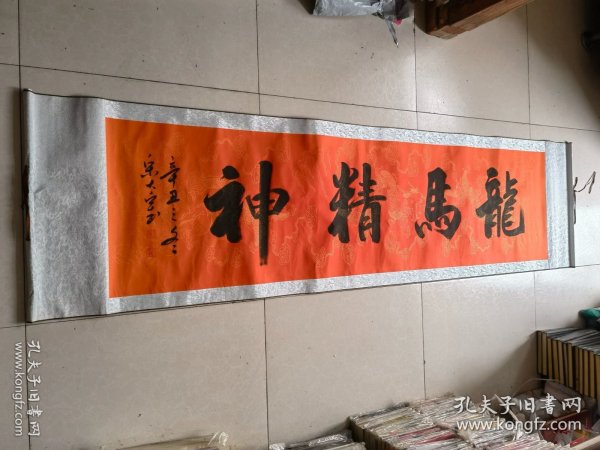 龍馬精神
辛丑之冬
孔夫子旧书网
www.kongfz.com
孔夫子旧书网
www.kongfz.com